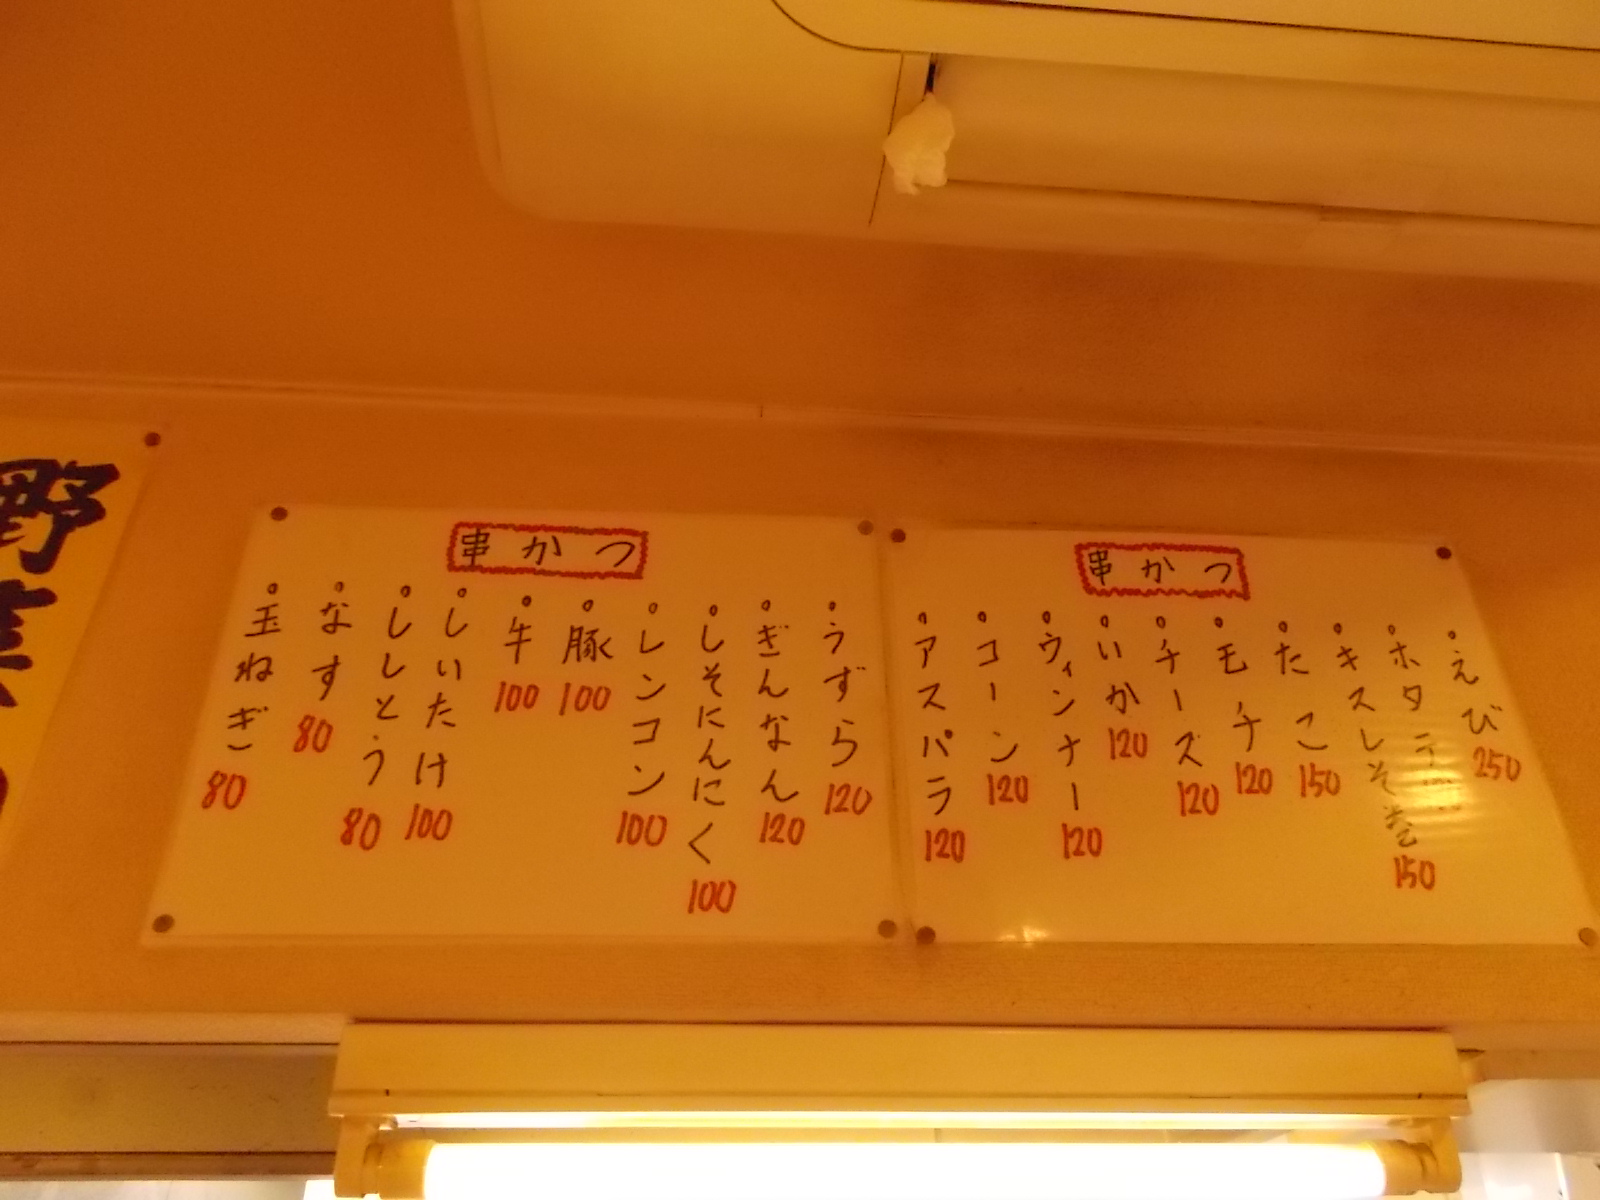 野菜
串かつ
玉ねぎ 80
なす 80
ししとう 80
しいたけ 100
牛 100
豚 100
レンコン 100
しそにんにく 100
ぎんなん 120
うずら 120
串かつ
アスパラ 120
コーン 120
ウィンナー 120
いか 120
チーズ 120
モチ 120
たこ 150
キスしそ巻 150
ホタテ
えび 250